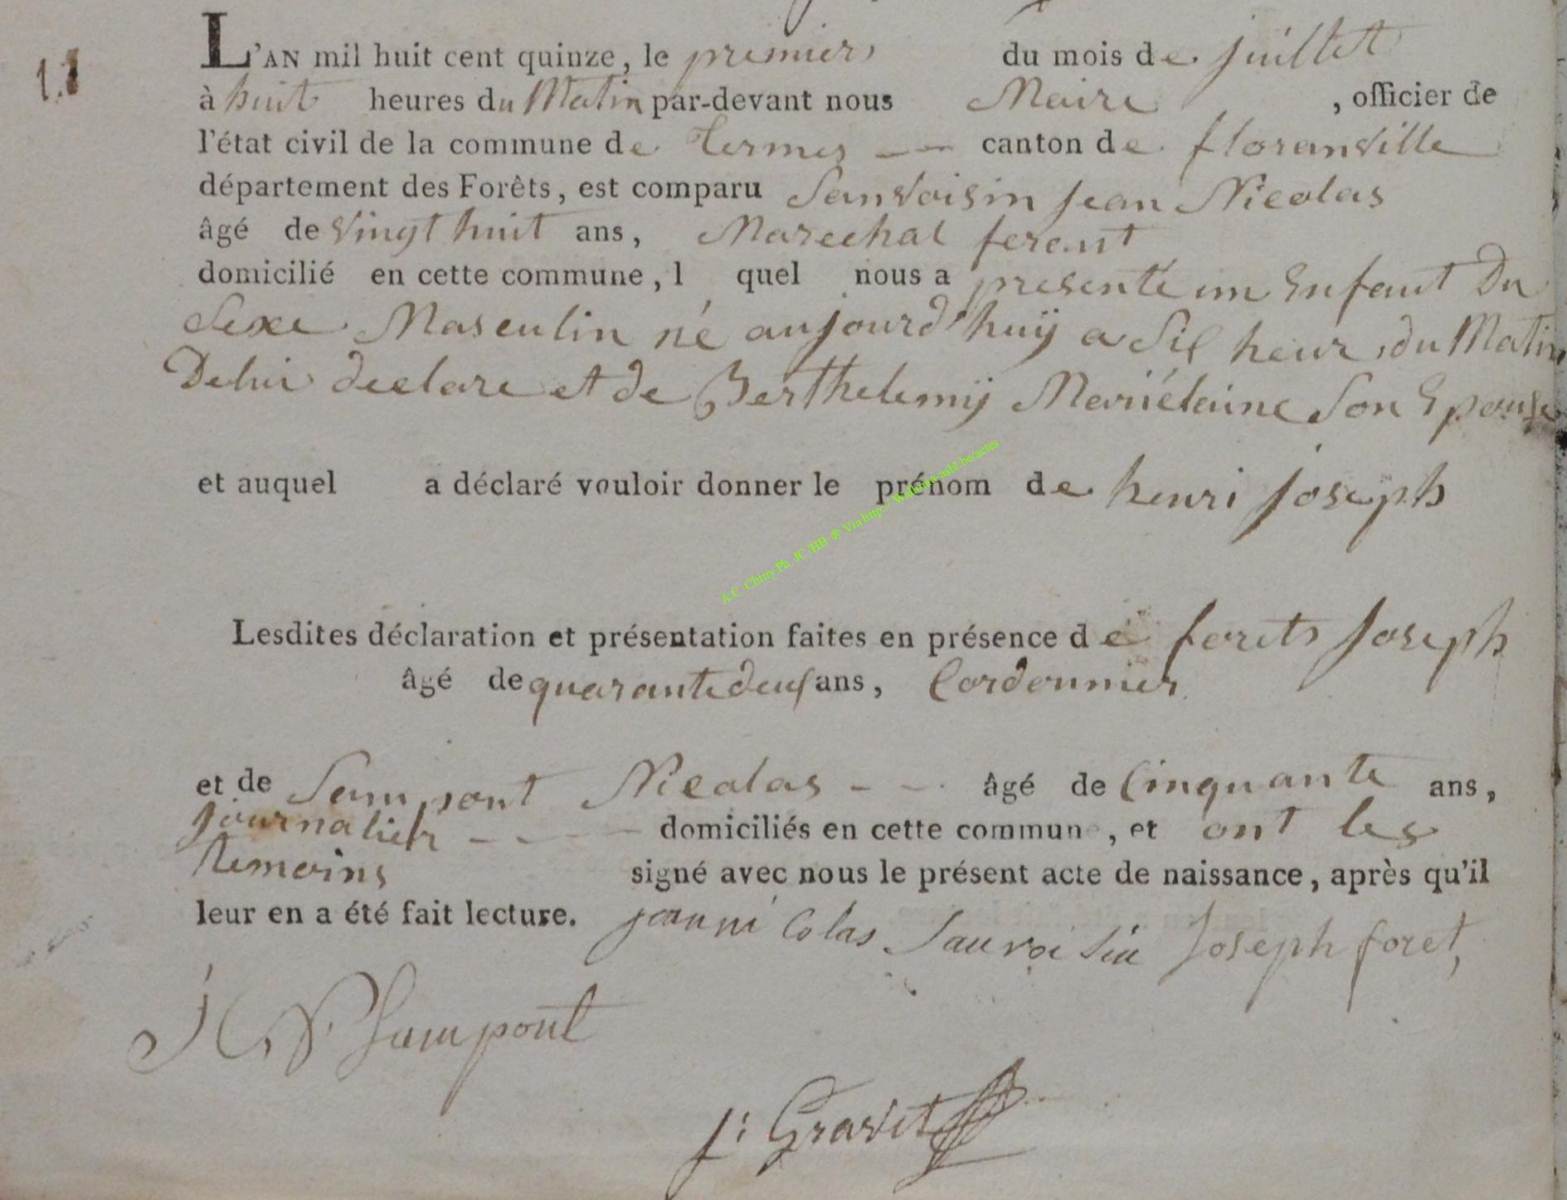 11
L'AN mil huit cent quinze, le premier du mois de juillet
à huit heures du Matin par-devant nous Maire , officier de
l'état civil de la commune de termes canton de floranville
département des Forêts, est comparu Sanvoisin jean Nicolas
âgé de vingt huit ans, Marechal ferant
domicilié en cette commune, l quel nous a presenté un Enfant Du
Sexe Masculin né aujourd'huÿ a Six heur du Matin
De lui declare et de Berthelemÿ Mariélaine Son Epouse
et auquel a déclaré vouloir donner le prénom de henri joseph
Lesdites déclaration et présentation faites en présence de forets Joseph
âgé de quarante deux ans, Cordonnier
et de Sampont Nicolas - - âgé de Cinquante ans,
journalier - - - domiciliés en cette commun , et ont les
temoins signé avec nous le présent acte de naissance, après qu'il
leur en a été fait lecture. jean ni colas Sauvoi sin Joseph foret,
Sampont
Gravet